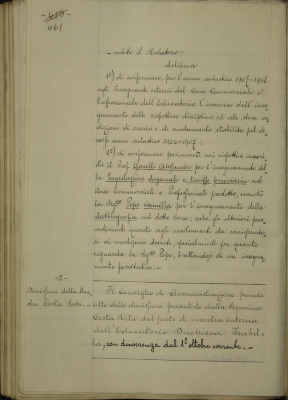 461
- udito il Relatore;
delibera
1°) di confermare, per l'anno scolastico 1907-1908
agli Insegnanti esterni del Corso Commerciale e
Professionale dell'Educatorio l'incarico dell'inse-
gnamento delle rispettive discipline ed alle stesse con-
dizioni di orario e di rendimento stabilite pel de-
corso anno scolastico 1906-1907;
2°) di confermare parimenti nei rispettivi incari-
chi il Prof. Alessandro per l'insegnamento del-
la legislazione doganale e tariffe ferroviarie nel
Corso Commerciale e Professionale predetto, nonché
la Sig.na Pepe Camilla per l'insegnamento della
dattilografia nel detto corso; salvo gli ulteriori prov-
vedimenti quanto agli emolumenti da corrispondere
ai medesimi dovuti, specialmente per quanto
riguarda la Sig.na Pepe, trattandosi di un insegna-
mento facoltativo. -
- 2 -
Dimissioni della Mae-
stra Costa Rita. -
Il Consiglio di Amministrazione prende
atto delle dimissioni presentate dalla Signorina
Costa Rita dal posto di maestra interna
dell'Educatorio Duchessa Isabel-
la, con decorrenza dal 1° ottobre corrente. -